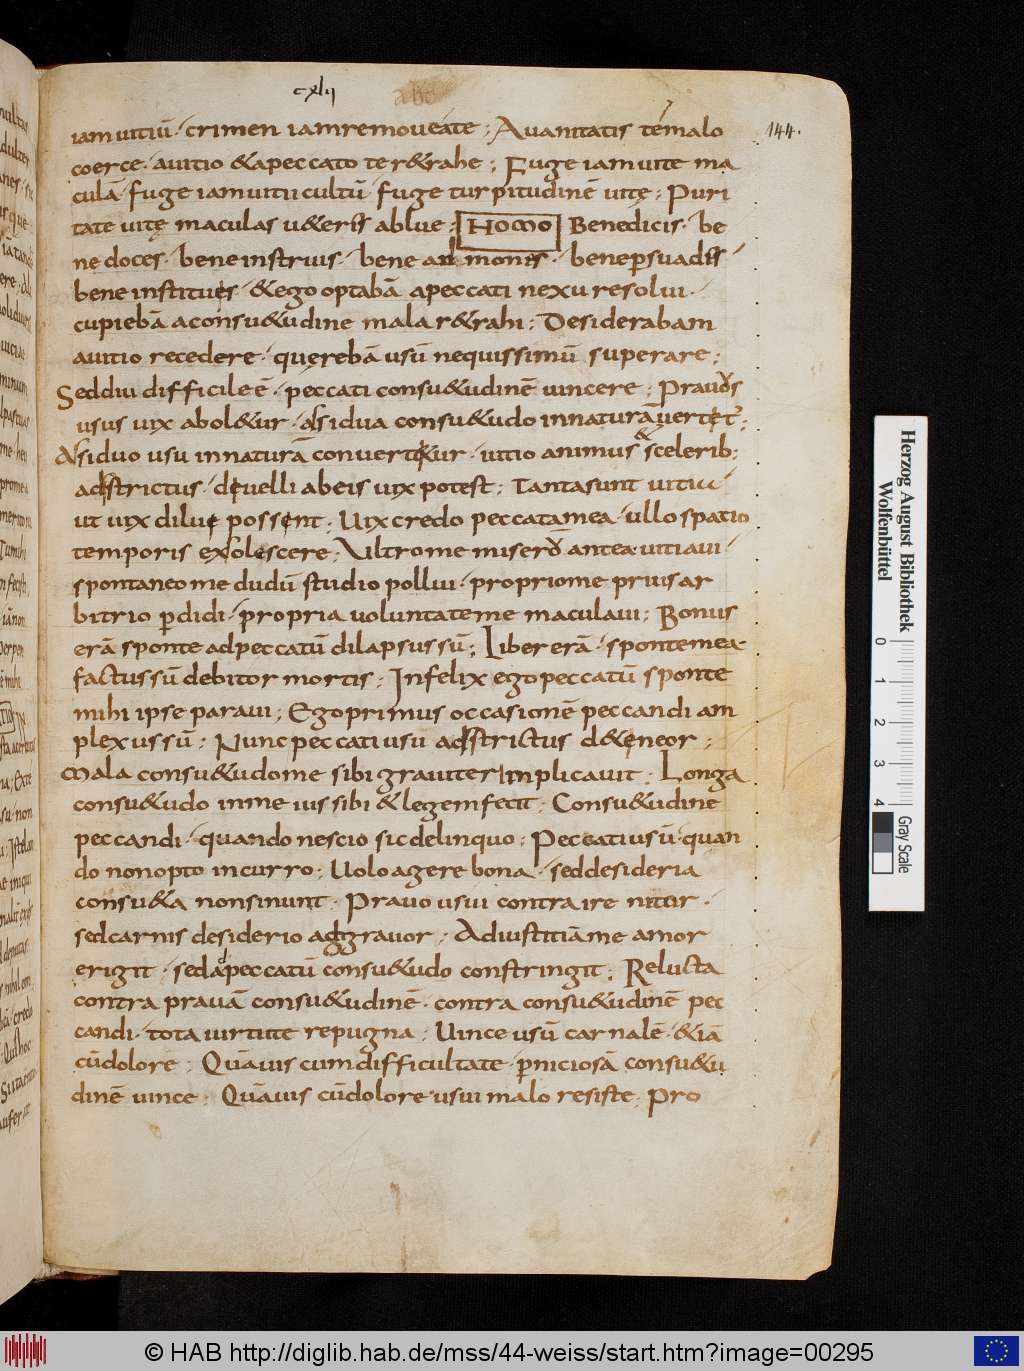 cxlii
abc
144.
iam uitiū · crimen iam remoueate ; A uanitatis te malo
coerce · auitio & apeccato te r&rahe ; Fuge iam uite ma
culā · fuge iam uitii cultū · fuge turpitudinē uitę ; Puri
tate uitę maculas u&eris ablue ; HOMO Benedicis · be
ne doces · bene instruis · bene admones · bene ꝑsuades
bene instituis · & ego optabā apeccati nexu resolui ·
cupiebā aconsu&udine mala r&rahi ; Desiderabam
auitio recedere · querebā usū nequissimū superare ;
Sed diu difficile ē · peccati consu&udinē uincere ; Prauos
usus uix abol&ur · assidua consu&udo in naturā uertit ;
Assiduo usu in naturā conuertitur · uitio animus & sceleribꝫ
adstrictus · diuelli ab eis uix potest ; Tanta sunt uitia
ut uix dilui possint ; Uix credo peccata mea · ullo spatio
temporis exsolescere ; Ultro me miserū antea uitiaui ·
spontaneo me dudū studio pollui · proprio me prius ar
bitrio ꝑdidi · propria uoluntate me maculaui ; Bonus
erā sponte ad peccatū dilapsus sū ; Liber erā · sponte mea
factus sū debitor mortis ; Infelix ego peccatū sponte
mihi ipse paraui ; Ego primus occasionē peccandi am
plexus sū ; Nunc peccati usu adstrictus d&ineor ;
Mala consu&udo me sibi grauiter inplicauit · Longa
consu&udo in me ius sibi & legem fecit ; Consu&udine
peccandi · quando nescio sic delinquo ; Peccati usū · quan
do non opto incurro ; Uolo agere bona · sed desideria
consu&a non sinunt · Prauo usui contraire nitor ·
sed carnis desiderio adgrauor ; Ad iustitiā me amor
erigit · sed ad peccatū consu&udo constringit ; Relucta
contra prauā consu&udinē · contra consu&udinē pec
candi · tota uirtute repugna ; Uince usū carnalē · & iā
cū dolore ; Quāuis cum difficultate · ꝑniciosā consu&u
dinē uince ; Quāuis cū dolore usui malo resiste ; Pro
Herzog August Bibliothek
Wolfenbüttel
0 1 2 3 4
Gray Scale
© HAB http://diglib.hab.de/mss/44-weiss/start.htm?image=00295